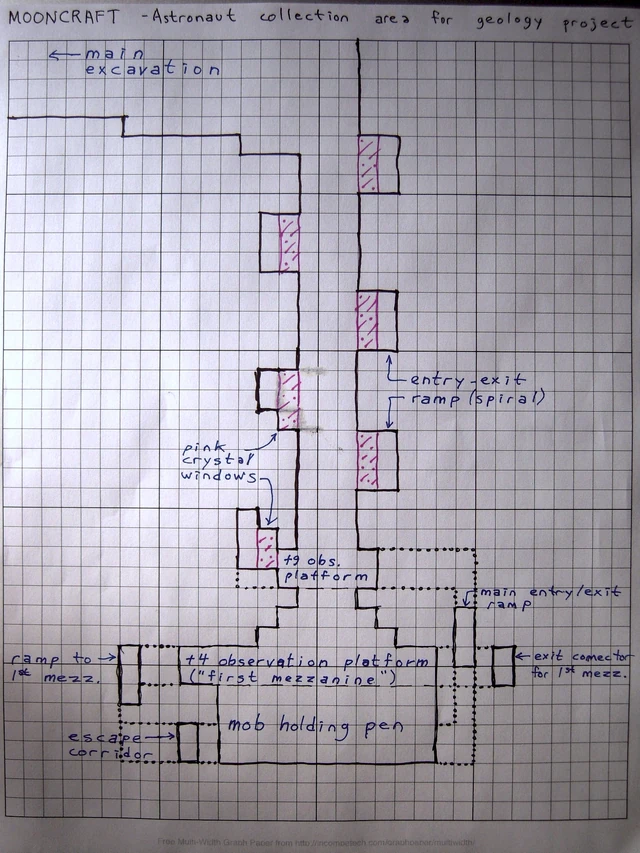 MOONCRAFT - Astronaut collection area for geology project
← main
excavation
entry-exit
ramp (spiral)
pink
crystal
windows
+9 obs.
platform
main entry/exit
ramp
ramp to
1st mezz.
+4 observation platform
("first mezzanine")
exit connector
for 1st mezz.
mob holding pen
escape
corridor
Free Multi-Width Graph Paper from